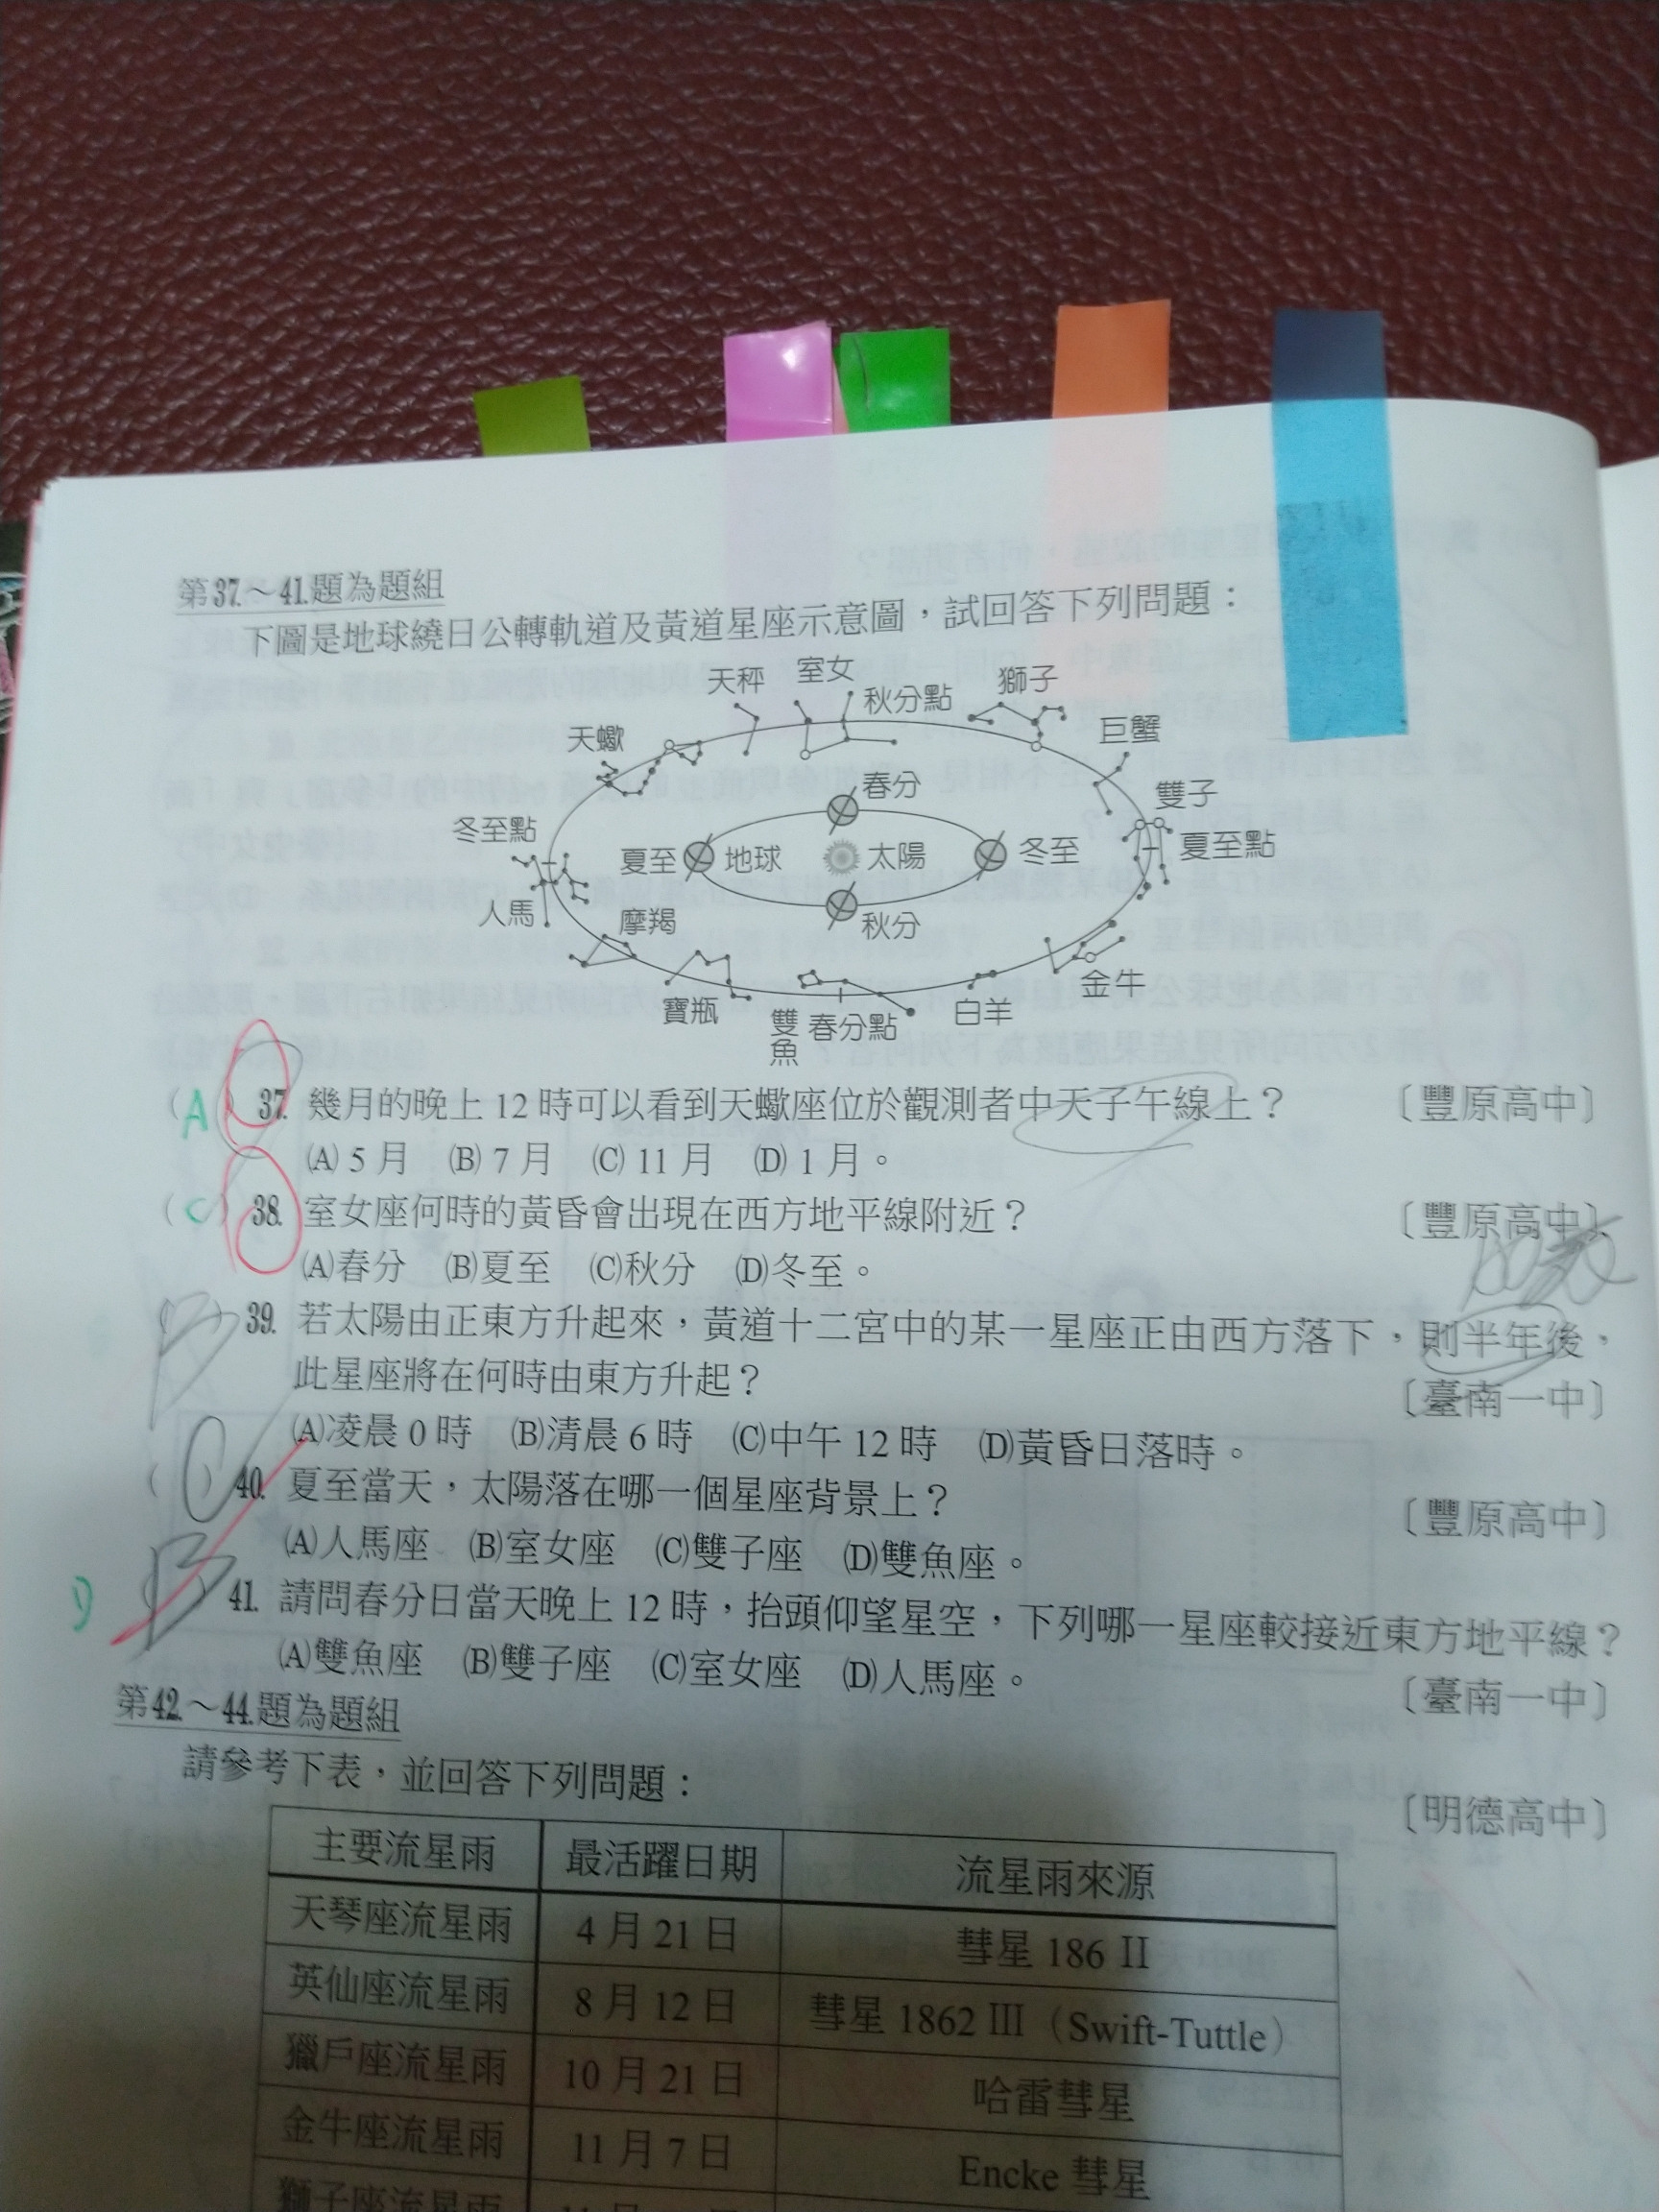 第37.～41.題為題組
下圖是地球繞日公轉軌道及黃道星座示意圖，試回答下列問題：
天秤 室女 秋分點 獅子
天蠍 巨蟹
春分 雙子
冬至點 夏至 地球 太陽 冬至 夏至點
人馬 摩羯 秋分
寶瓶 雙魚 春分點 白羊 金牛
(A) 37. 幾月的晚上 12 時可以看到天蠍座位於觀測者中天子午線上？ 〔豐原高中〕
(A) 5 月 (B) 7 月 (C) 11 月 (D) 1 月。
(C) 38. 室女座何時的黃昏會出現在西方地平線附近？ 〔豐原高中〕
(A)春分 (B)夏至 (C)秋分 (D)冬至。
39. 若太陽由正東方升起來，黃道十二宮中的某一星座正由西方落下，則半年後，
此星座將在何時由東方升起？ 〔臺南一中〕
(A)凌晨 0 時 (B)清晨 6 時 (C)中午 12 時 (D)黃昏日落時。
( ) 40. 夏至當天，太陽落在哪一個星座背景上？ 〔豐原高中〕
(A)人馬座 (B)室女座 (C)雙子座 (D)雙魚座。
D 41. 請問春分日當天晚上 12 時，抬頭仰望星空，下列哪一星座較接近東方地平線？
(A)雙魚座 (B)雙子座 (C)室女座 (D)人馬座。 〔臺南一中〕
第42.～44.題為題組
請參考下表，並回答下列問題： 〔明德高中〕
主要流星雨 最活躍日期 流星雨來源
天琴座流星雨 4 月 21 日 彗星 186 II
英仙座流星雨 8 月 12 日 彗星 1862 III（Swift-Tuttle）
獵戶座流星雨 10 月 21 日 哈雷彗星
金牛座流星雨 11 月 7 日 Encke 彗星
獅子座流星雨